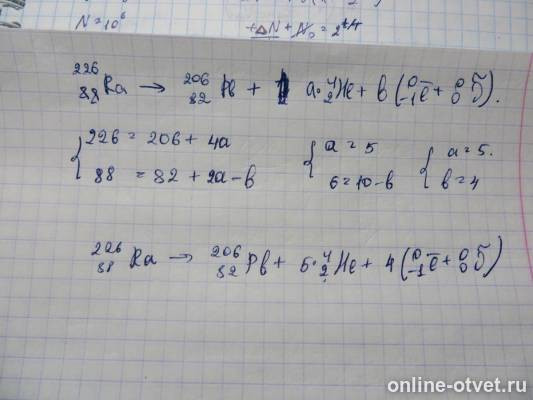 N = 10⁶
+ΔN + N₀ = 2
²²⁶₈₈Ra → ²⁰⁶₈₂Pb + a·⁴₂He + b(⁰₋₁ē + ⁰₀ν̃).
{226 = 206 + 4a {a = 5 {a = 5.
88 = 82 + 2a − b 6 = 10 − b b = 4
²²⁶₈₈Ra → ²⁰⁶₈₂Pb + 5·⁴₂He + 4(⁰₋₁ē + ⁰₀ν̃)
online-otvet.ru